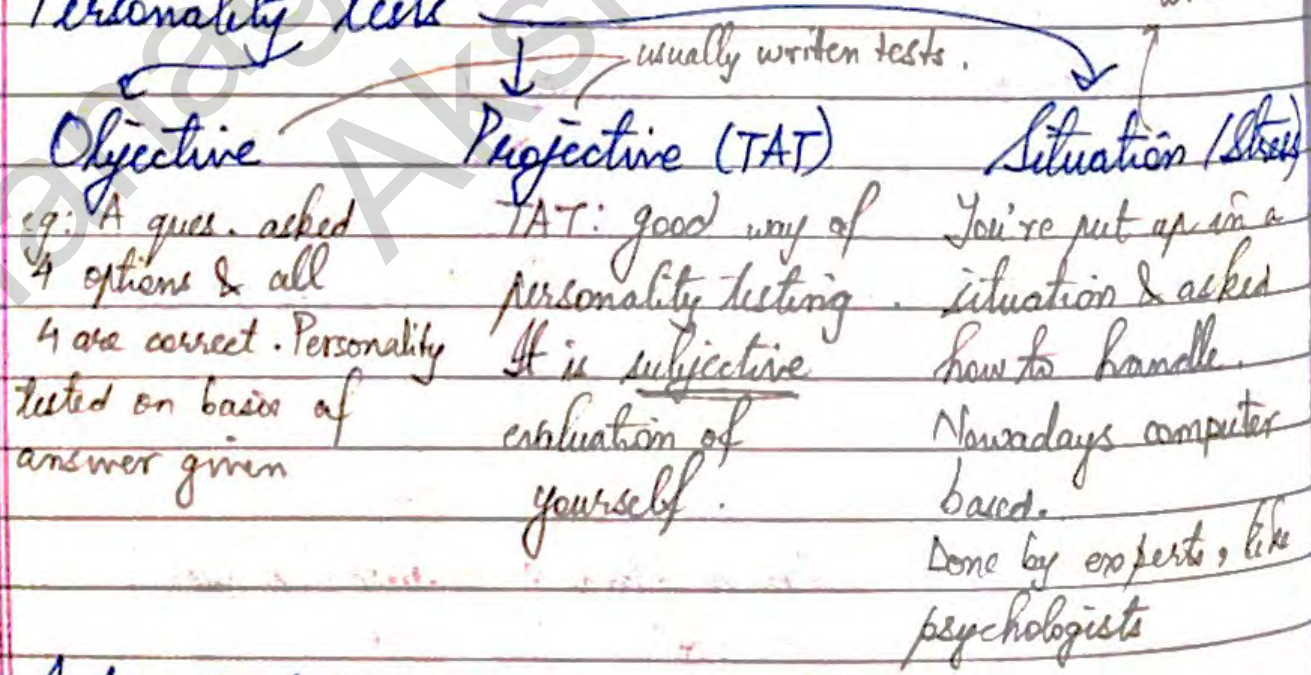 Personality tests
usually writen tests.
Objective
eg: A ques. asked
4 options & all
4 are correct. Personality
tested on basis of
answer given
Projective (TAT)
TAT: good way of
personality testing.
It is subjective
evaluation of
yourself.
Situation (Stress)
You're put up in a
situation & asked
how to handle.
Nowadays computer
based.
Done by experts, like
psychologists